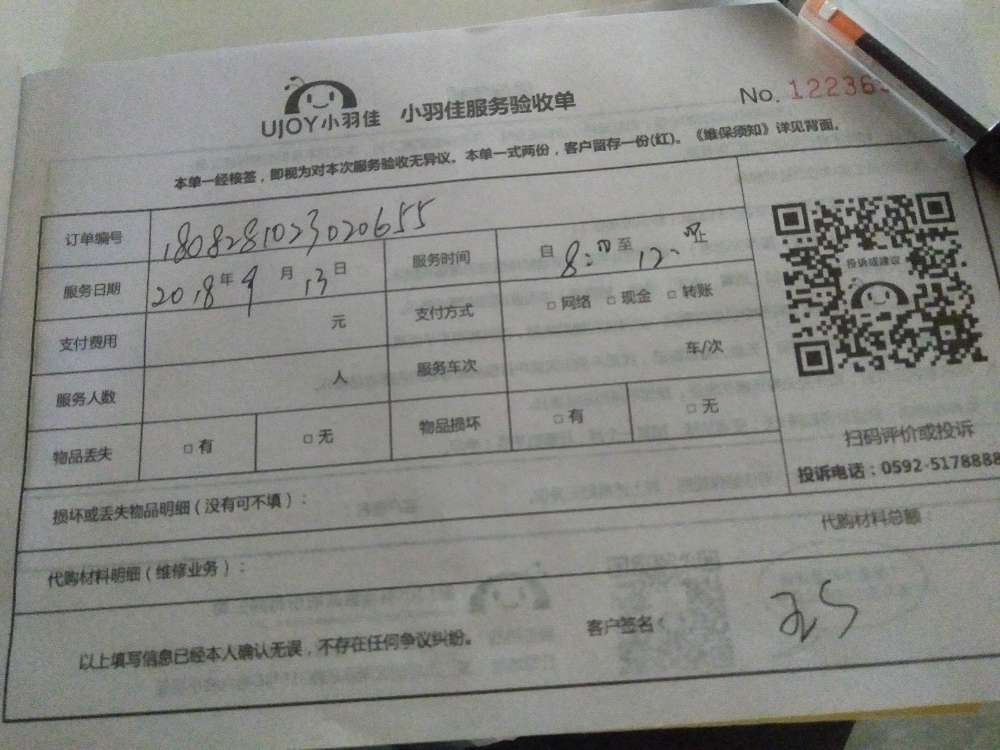 UJOY小羽佳 小羽佳服务验收单 No. 12236
本单一经核签，即视为对本次服务验收无异议。本单一式两份，客户留存一份(红)。《维保须知》详见背面。
订单编号 1808281023020655
服务日期 2018年9月13日 服务时间 自8:00至12:00止
支付费用 元 支付方式 □ 网络 □ 现金 □ 转账
服务人数 人 服务车次 车/次
物品丢失 □ 有 □ 无 物品损坏 □ 有 □ 无
投诉或建议
扫码评价或投诉
投诉电话：0592-5178888
损坏或丢失物品明细（没有可不填）：
代购材料明细（维修业务）： 代购材料总额：
以上填写信息已经本人确认无误，不存在任何争议纠纷。 客户签名：